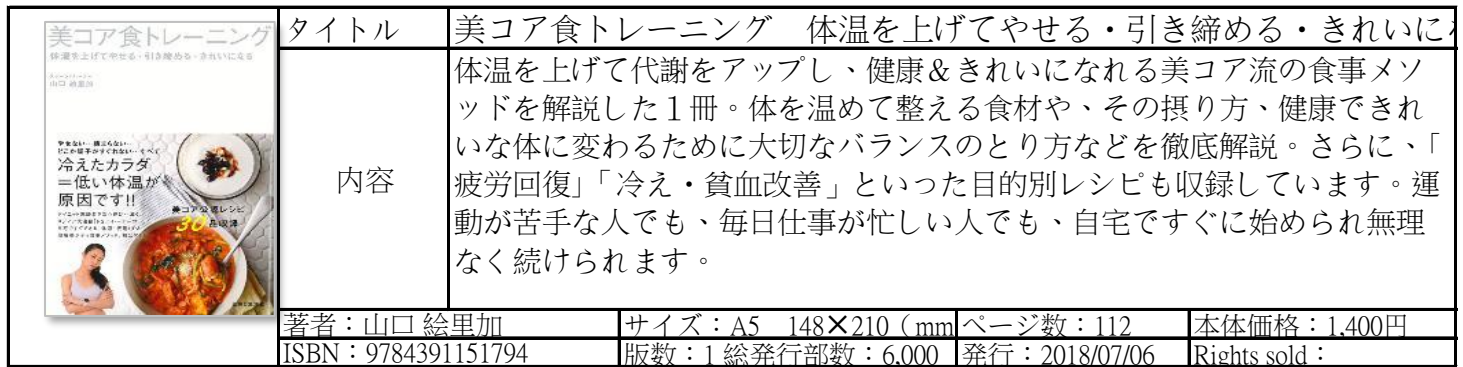 美コア食トレーニング
体温を上げてやせる・引き締める・きれいになる
山口 絵里加
冷えたカラダ
=低い体温が
原因です!!
美コア公認レシピ
30品収録!
タイトル
美コア食トレーニング　体温を上げてやせる・引き締める・きれいに
内容
体温を上げて代謝をアップし、健康&きれいになれる美コア流の食事メソ
ッドを解説した１冊。体を温めて整える食材や、その摂り方、健康できれ
いな体に変わるために大切なバランスのとり方などを徹底解説。さらに、「
疲労回復」「冷え・貧血改善」といった目的別レシピも収録しています。運
動が苦手な人でも、毎日仕事が忙しい人でも、自宅ですぐに始められ無理
なく続けられます。
著者：山口 絵里加
サイズ：A5　148×210（mm
ページ数：112
本体価格：1,400円
ISBN：9784391151794
版数：1 総発行部数：6,000
発行：2018/07/06
Rights sold：